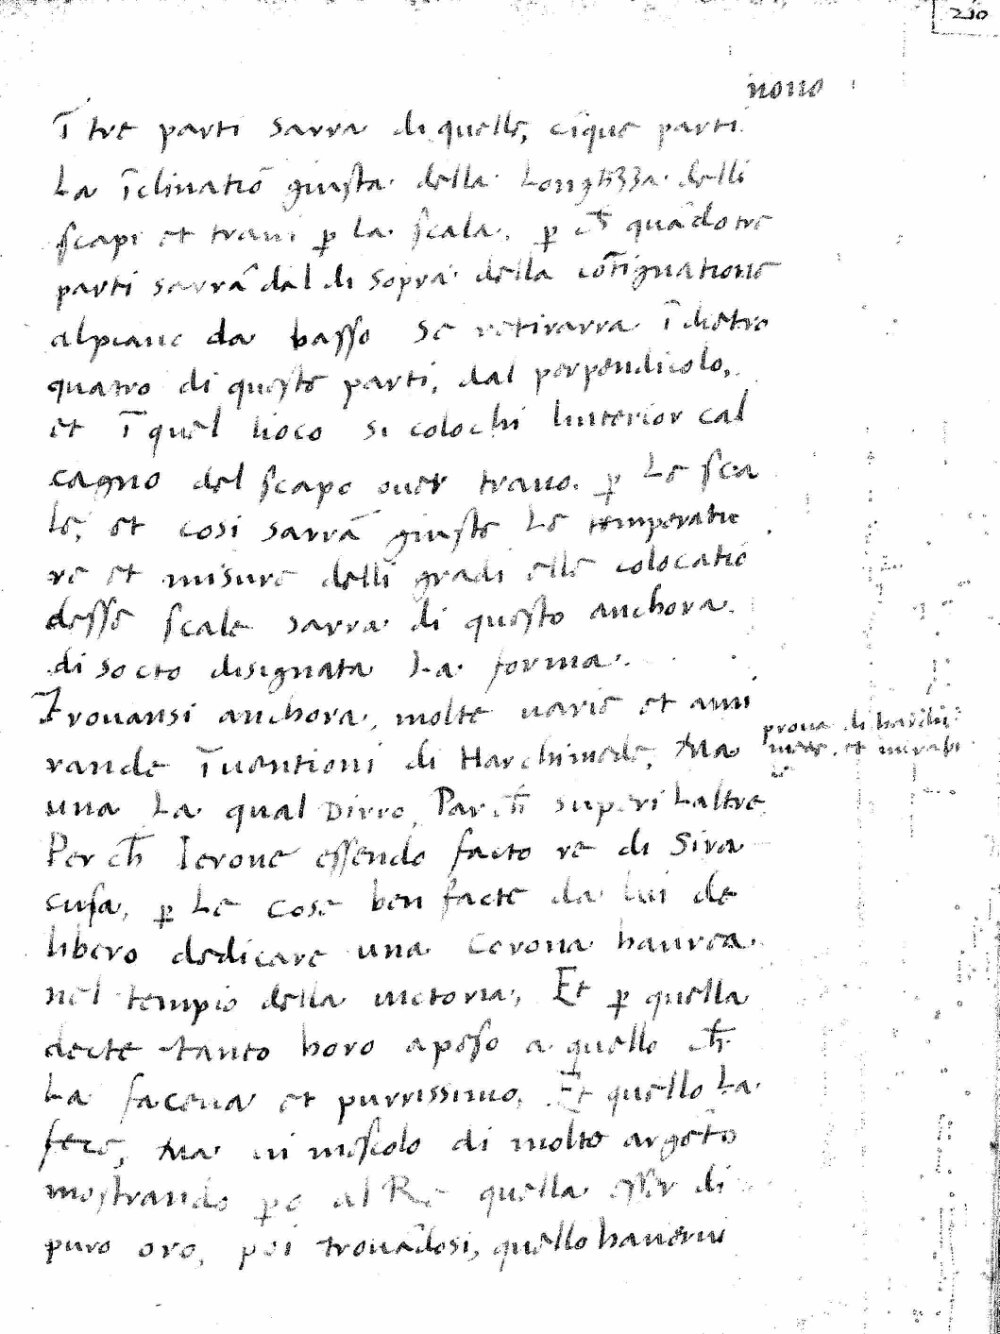 210
nono
ī tre parti sarra di quelle, cīque parti
La īclinatiō giusta della Longhezza delli
scapi et traui ꝑ la scala, ꝑ ch̄ quādo tre
parti sarrā dal di sopra della cōtignatione
alpiano da basso se retirarra īdietro
quatro di queste parti, dal perpendicolo,
et ī quel lioco si colochi linterior cal
cagno del scapo ouer trauo. ꝑ Le sca
le, et cosi sarrā giuste Le temperatu
re et misure delli gradi elle colocatiō
desse scale sarra di questo anchora
di socto disignata La forma.
Trouansi anchora, molte uarie et ami
rande īuentioni di Harchimede, Ma
una La qual Dirro, Parch̄ superi Laltre
Per ch̄ Ierone essendo facto re di Sira
cusa, ꝑ Le cose ben facte da lui de
libero dedicare una Corona haurea
nel tempio della uictoria, Et ꝑ quella
decte tanto horo apeso a quello ch̄
La faceua et purissimo, Et quello La
fece, Ma ui mescolo di molto argēto
mostrando ꝑo al Re quella esser di
puro oro, poi trouādosi, quello hauerui
proua di harchi
mede et mirabi
le